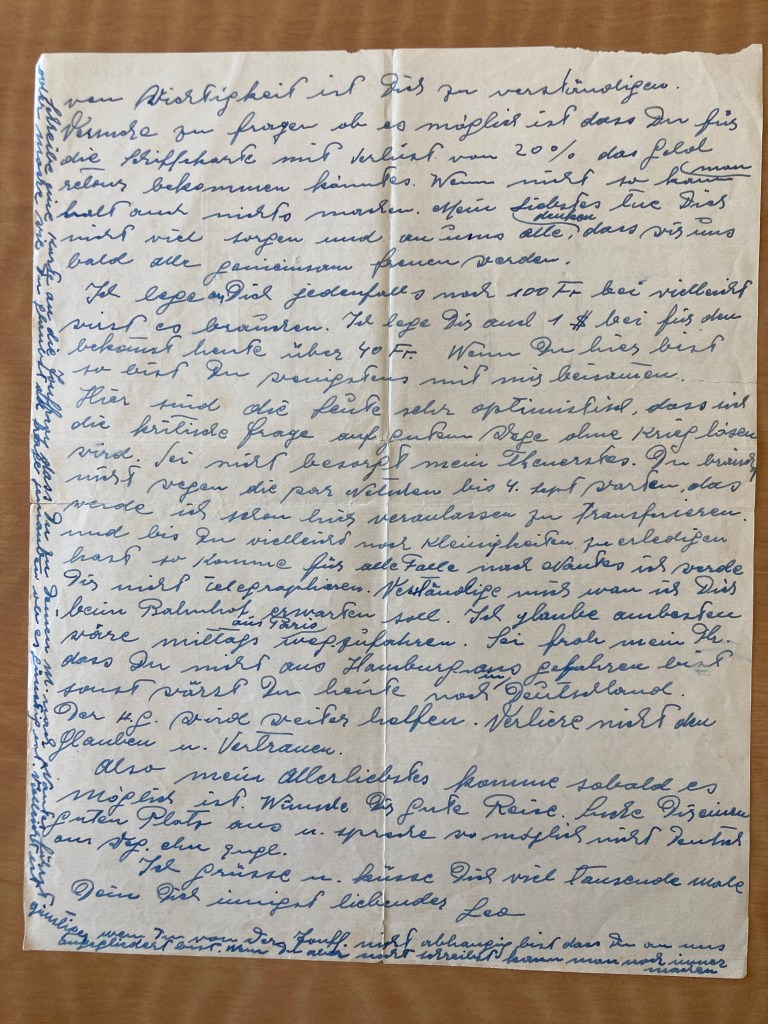 von Wichtigkeit ist Dich zu verständigen.
Versuche zu fragen ob es möglich ist dass Du für
die Schiffskarte mit Verlust von 20% das Geld
retour bekommen könntest. Wenn nicht so kann man
halt auch nichts machen. Mein Liebstes tue Dich
nicht viel sorgen und denken an uns alle, dass wir uns
bald alle gemeinsam freuen werden.
Ich lege an Dich jedenfalls noch 100 Fr bei vielleicht
wirst es brauchen. Ich lege Dir auch 1 $ bei für den
bekomst heute über 40 Fr. Wenn Du hier bist
so bist Du wenigstens mit mir beisamen.
Hier sind die Leute sehr optimistisch, dass sich
die kritische Frage auf gutem Wege ohne Krieg lösen
wird. Sei nicht besorgt mein Theuerstes. Du brauchst
nicht wegen die par bis 4. Sept warten, das
werde ich schon hier veranlassen zu transferieren.
und bis Du vielleicht noch Kleinigkeiten zu erledigen
hast so komme für alle Fälle nach Nantes ich werde
Dir nicht telegraphieren. Verständige mich wan ich Dich
beim Bahnhof erwarten soll. Ich glaube ambesten
wäre mittags aus Paris wegzufahren. Sei froh mein Th.
dass Du nicht aus Hamburg aus gefahren bist
sonst wärst Du heute noch in Deutschland.
Der H.G. wird weiter helfen. Verliere nicht den
Glauben u. Vertrauen.
Also mein Allerliebstes komme sobald es
möglich ist. Wünsche Dir gute Reise. Suche Dir einen
guten Platz aus u. spreche wo möglich nicht Deutsch
am Weg. ehr Engl.
Ich grüsse u. küsse Dich viel tausende male
Dein Dich innigst liebender Leo
Schreibe eine Karte an die dass Du zu Deinen M. nach Nantes fährst
oder mache wie Du glaubst
günstiger wen Du von der nicht abhängig bist dass Du an uns
angegliedert bist. Wen Du aber nicht schreibst kann man noch immer
machen